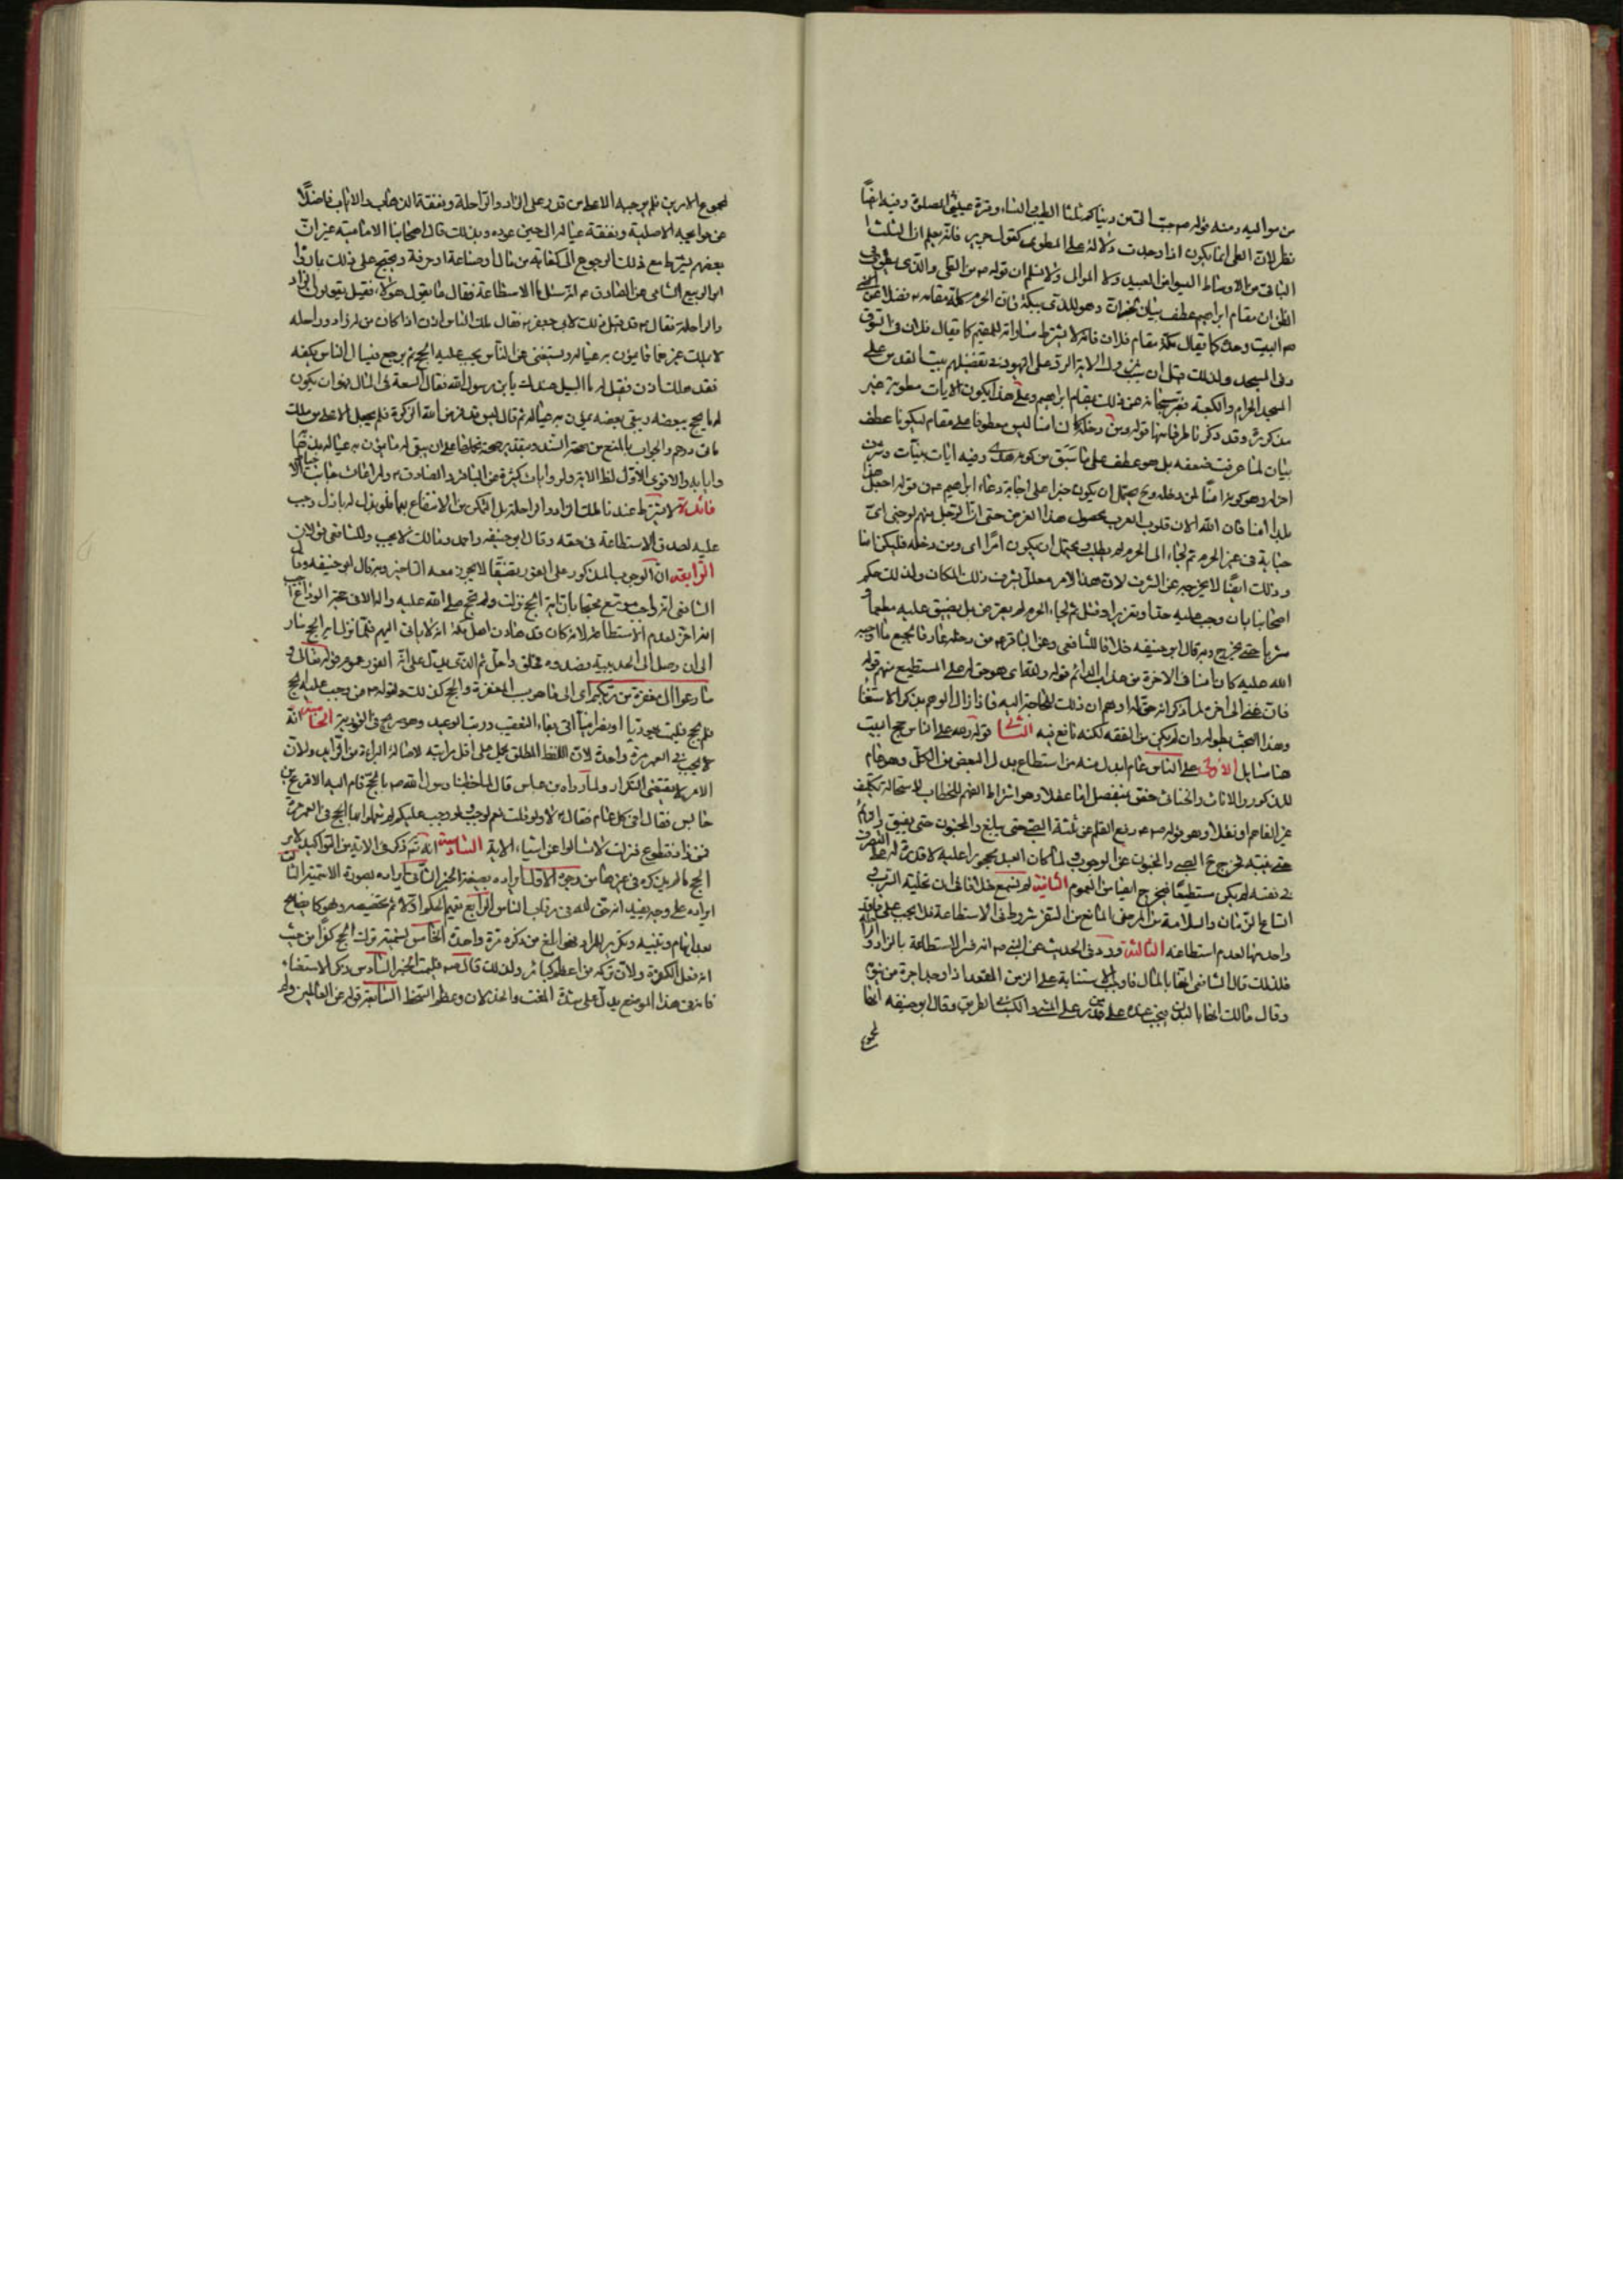 من مواليه ومنه قوله ص حبب الى من دنياكم ثلثا الطيب والنساء وقرة عينى الصلوة وفيه ايضا
نظر لان العلى انما يكون اذا وجدت دلالة على المطوى كقول جرير فلم يعلم ان الثلث
الباقى من الاوساط ليسوا من العبيد ولا الموالى ولا نسلم ان قوله ص من العلى والذى
الظن ان مقام ابراهيم عطف بيان وهو للذى ببكة فان الحرم كله مقامه فضلا عن
البيت وحده كما يقال مكة مقام فلان فانه لا يشترط مساواته للمقيم كما يقال فلان فى السوق
وفى المسجد ولذلك قيل ان سبب نزول الاية الرد على اليهود فى تفضيلهم بيت المقدس على
المسجد الحرام والكعبة سبحانه عن ذلك بمقام ابراهيم وعلى هذا يكون الايات مطوية غير
مذكورة وقد ذكرنا طرفا منها قوله ومن دخله كان امنا ليس معطوفا على مقام ليكونا عطف
بيان لما عرفت ضعفه بل هو عطف على ما سبق من كونه هدى وفيه ايات بينات
اخر له وهو كونه امنا لمن دخله ويحتمل ان يكون خبرا على اجابة دعاء ابراهيم ع فى قوله اجعل هذا
بلدا امنا فان الله الان قلوب العرب بحصول هذا الغرض حتى ان الرجل منهم لو جنى اى
جناية فى غير الحرم ثم لجاء الى الحرم لم يطلب ويحتمل ان يكون امرا اى ومن دخله فليكن امنا
وذلك ايضا لا يخرجه عن الشرف لان هذا الامر معلل بشرف ذلك المكان ولذلك حكم
اصحابنا بان وجب عليه حد او تعزير او قتل ثم لجاء الحرم لم يعرض بل يضيق عليه مطعما و
مشربا حتى يخرج وبه قال ابو حنيفة خلافا للشافعى وعن الباقر ع من دخله عارفا بجميع ما اوجبه
الله عليه كان امنا فى الاخرة من عذاب الدائم قوله ولله اى هو حق له على المستطيع منهم قوله
فان غنى الى اخره لما ذكر انه حق له اوهم ان ذلك للحاجة اليه فازال الوهم بذكر الاستغناء
وهذا البحث بطوله وان لم يكن من الفقه لكنه نافع فيه قوله ولله على الناس حج البيت
هنا مسايل الاولى على الناس عام ابدل منه من استطاع بدل البعض من الكل وهو عام
للذكور والاناث والخناثى خص بمنفصل اما عقلا وهو اشتراط الفهم للخطاب لاستحالة تكليف
غير الفاهم او نقلا وهو قوله ص رفع القلم عن ثلثة الصبى حتى يبلغ والمجنون حتى يفيق
فخرج الصبى والمجنون عن الوجوب ولما كان العبد محجورا عليه لا قدرة له على التصرف
فى نفسه لم يكن مستطيعا فخرج ايضا من العموم الثانية لم يسمع خلافا فى ان تخلية السرب و
اتساع الزمان والسلامة من المرض المانع من السفر شروط فى الاستطاعة فلا يجب على فاقد
واحد منها لعدم استطاعته الثالثة ورد فى الحديث عن النبى ص انه فسر الاستطاعة بالزاد والراحلة
فلذلك قال الشافعى انها بالمال فاوجب الاستنابة على الزمن المقعد اذا وجد اجرة من ينوب
وقال مالك انها بالبدن فيجب عنده على من قدر على المشى والكسب فى الطريق وقال ابو حنيفة انها
لمجموع
لمجموع الامرين فلم يوجبه الا على من قدر على الزاد والراحلة ونفقة الذهاب والاياب فاضلا
عن حوايجه الاصلية ونفقة عياله الى حين عوده وبذلك قال اصحابنا الامامية غير ان
بعضهم يشترط مع ذلك الرجوع الى كفاية من مال او صناعة او حرفة ويحتج على ذلك بما رواه
ابو الربيع الشامى عن الصادق ع انه سئل ما الاستطاعة فقال ما يقول هؤلاء فقيل يقولون الزاد
والراحلة فقال ع قد قيل ذلك لابى جعفر ع فقال هلك الناس اذن اذا كان من له زاد وراحلة
لا يملك غيرهما مما يمون به عياله ويستغنى عن الناس يجب عليه الحج ثم يرجع فيسأل الناس بكفه
فقد هلك اذن فقيل له ما السبيل عندك يا بن رسول الله فقال السعة فى المال هو ان يكون
له ما يحج ببعضه ويبقى بعضه يمون به عياله ثم قال اليس قد فرض الله الزكوة فلم يجعل الا على من ملك
مأتى درهم والجواب بالمنع من صحة السند وبتقدير صحته نحملها على ان يبقى له ما يمون به عياله ذهابا
وايابا والاقوى الاول لظاهر الاية ولروايات كثيرة عن الباقر والصادق ع
فائدة لا يشترط عندنا ملك الزاد والراحلة بل التمكن من الانتفاع بهما فلو بذل له باذل وجب
عليه لصدق الاستطاعة فى حقه وقال ابو حنيفة واحمد ومالك لا يجب وللشافعى قولان
الرابعة ان الوجوب المذكور على الفور مضيقا لا يجوز معه التاخير وبه قال ابو حنيفة وقال
الشافعى انه واجب موسع محتجا بان اية الحج نزلت ولم يحج صلى الله عليه واله الا فى حجة الوداع
انه اخره لعدم الاستطاعة لانه كان قد هادن اهل مكة انه لا يأتى اليهم فلما نزل اية الحج سار
الى ان وصل الى الحديبية وصدوه فحلق واحل ثم الذى يدل على انه الفور عموم قوله تعالى و
سارعوا الى مغفرة من ربكم اى الى ما هو سبب المغفرة والحج كذلك ولقوله ص من وجب عليه الحج
فلم يحج فليمت يهوديا او نصرانيا اتى بفاء التعقيب ورتب الوعيد وهو صريح فى الفورية الخامسة انه
لا يجب فى العمر الا مرة واحدة لان اللفظ المطلق يحمل على اقل مراتبه لاصالة البراءة من الزايد ولان
الامر لا يقتضى التكرار ولما رواه بن عباس قال لما خطبنا رسول الله ص بالحج قام اليه الاقرع بن
حابس فقال افى كل عام فقال ع لا ولو قلت نعم لوجب ولو وجب عليكم لم تعملوا بها الحج فى العمر مرة
فمن زاد فتطوع فنزلت لا تسألوا عن اشياء الاية السادسة انه تع ذكر فى الاية من التواكيد لامر
الحج ما لم يذكره فى غيرها من وجوه الاول ايراده بصيغة الخبر الثانى ايراده بصورة الاسمية الثالث
ايراده على وجه يفيد انه حق لله فى رقاب الناس الرابع تعميم الحكم اولا ثم تخصيصه وهو كايضاح
بعد ابهام وتثنية وتكرير للمراد فهو ابلغ من ذكره مرة واحدة الخامس تسمية ترك الحج كفرا من حيث
انه فعل الكفرة ولان تركه من اعظم الكبائر ولذلك قال ص فليمت الخبر السادس ذكر الاستغناء
فانه فى هذا الموضع يدل على شدة المقت والخذلان وعظم السخط السابعة قوله عن العالمين ولم